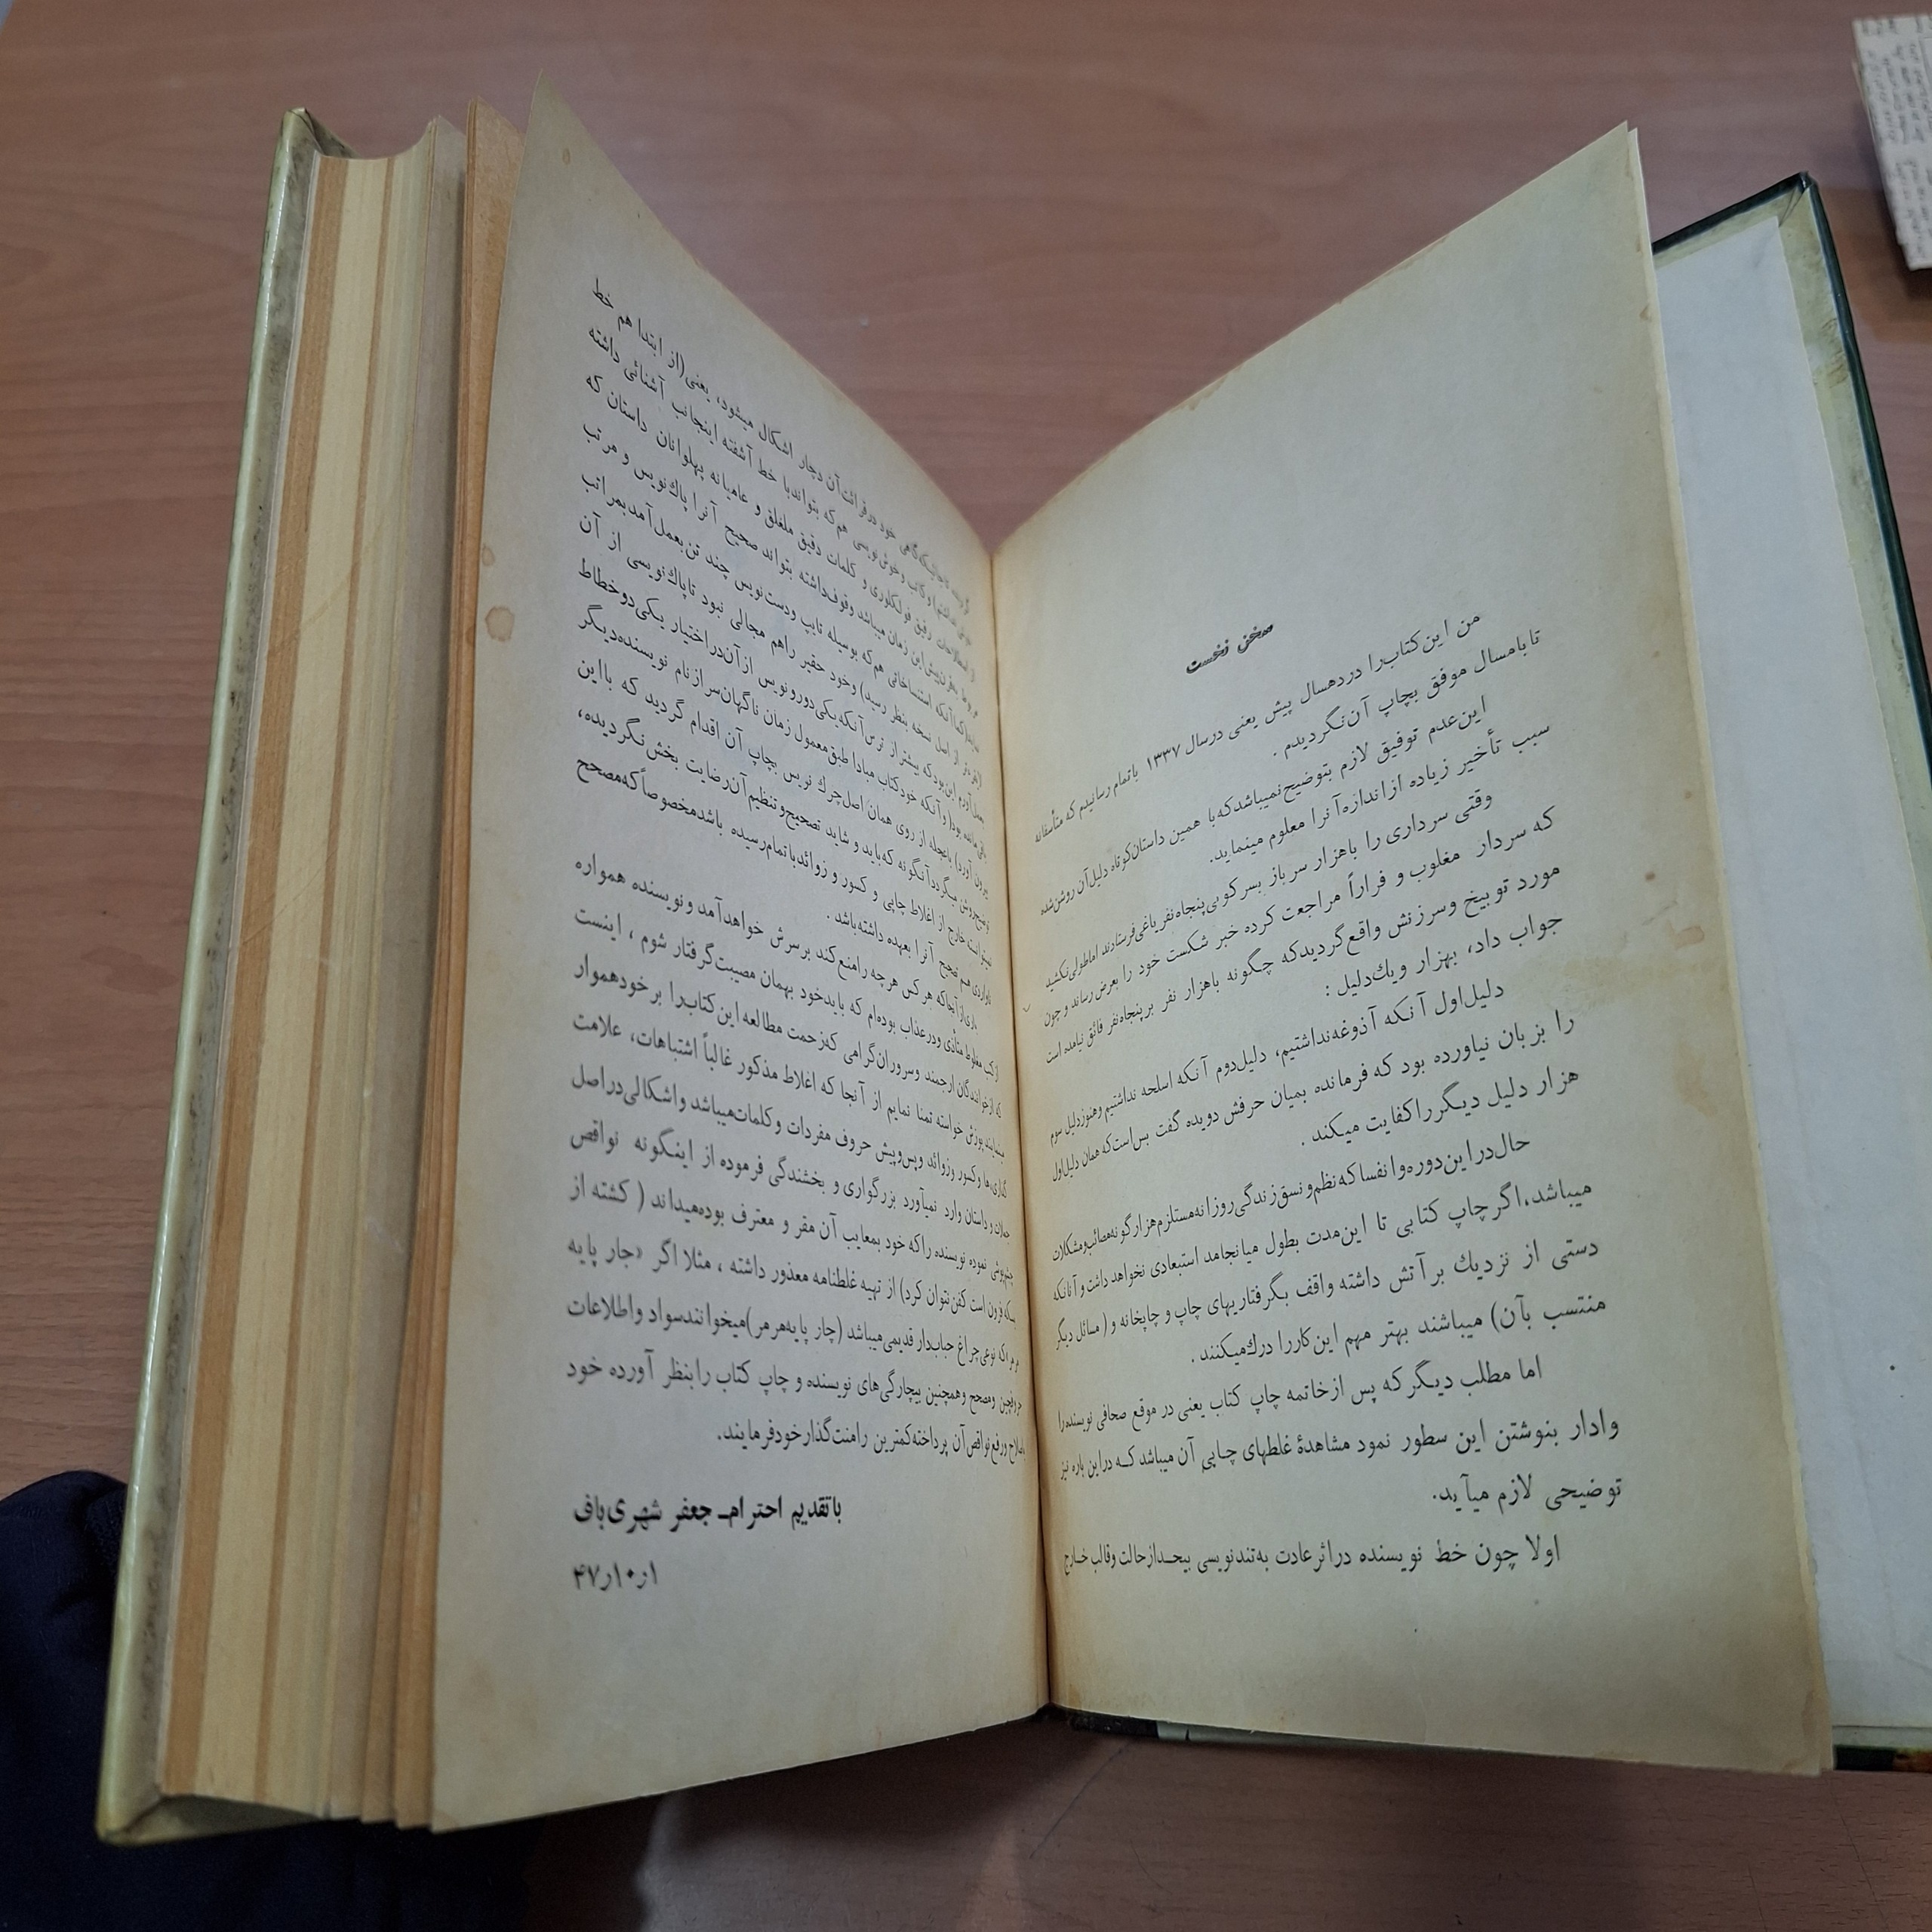 سخن نخست
من این کتاب را در دهسال پیش یعنی در سال ۱۳۳۷ باتمام رسانیدم که متأسفانه
تا بامسال موفق بچاپ آن نگردیدم .
این عدم توفیق لازم بتوضیح نمیباشد که با همین داستان کوتاه دلیل آن روشن شده
سبب تأخیر زیاده از اندازه آنرا معلوم مینماید.
وقتی سرداری را باهزار سرباز بسرکوبی پنجاه نفر یاغی فرستادند اما طولی نکشید
که سردار مغلوب و فراراً مراجعت کرده خبر شکست خود را بعرض رساند و چون
مورد توبیخ و سرزنش واقع گردید که چگونه باهزار نفر بر پنجاه نفر فائق نیامده است
جواب داد، بهزار و یك دلیل :
دلیل اول آنکه آذوغه نداشتیم، دلیل دوم آنکه اسلحه نداشتیم و هنوز دلیل سوم
را بزبان نیاورده بود که فرمانده بمیان حرفش دویده گفت بس است که همان دلیل اول
هزار دلیل دیگر را کفایت میکند .
حال در این دوره وانفسا که نظم و نسق زندگی روزانه مستلزم هزار گونه مصائب و مشکلات
میباشد، اگر چاپ کتابی تا این مدت بطول میانجامد استبعادی نخواهد داشت و آنانکه
دستی از نزدیك بر آتش داشته واقف بگرفتاریهای چاپ و چاپخانه و ( مسائل دیگر
منتسب بآن) میباشند بهتر مهم این کار را درك میکنند .
اما مطلب دیگر که پس از خاتمه چاپ کتاب یعنی در موقع صحافی نویسنده را
وادار بنوشتن این سطور نمود مشاهدهٔ غلطهای چاپی آن میباشد کـه در این باره نیز
توضیحی لازم میآید.
اولا چون خط نویسنده در اثر عادت به تند نویسی بیحـد از حالت و قالب خـارج
خود در قرائت آن دچار اشکال میشود، یعنی (از ابتدا هم خط
و خوش نویسی هم که بتواند با خط آشفته اینجانب آشنائی داشته
فولکلوری و کلمات دقیق ملغلق و عامیانه پهلوانان داستان که
این زمان میباشد وقوف داشته بتواند صحیح آنرا پاك نویس و مرتب
استنساخاتی هم که بوسیله تایپ و دست نویس چند تن بعمل آمد بمراتب
از اصل نسخه بنظر رسید) و خود حقیر را هم مجالی نبود تا پاك نویسی از آن
بعمل آورم این بود که بیشتر از ترس آنکه یکی دو رونویس از آن در اختیار یکی دو خطاط
بود( و آنکه خود کتاب مبادا طبق معمول زمان ناگهان سر از نام نویسنده دیگر
بیرون آورد) باعجله از روی همان اصل چرك نویس بچاپ آن اقدام گردید که بااین
میگردد آنگونه که باید و شاید تصحیح و تنظیم آن رضایت بخش نگردیده،
خارج از اغلاط چاپی و کسور و زوائد باتمام رسیده باشد مخصوصاً که مصحح
هم تصحیح آنرا بعهده داشته باشد .
از آنجا که هر کس هر چه را منع کند برسرش خواهد آمد و نویسنده همواره
از کتب مغلوط متأذی و در عذاب بوده ام که باید خود بهمان مصیبت گرفتار شوم ، اینست
که از خوانندگان ارجمند و سروران گرامی که زحمت مطالعه این کتاب را بر خود هموار
پوزش خواسته تمنا نمایم از آنجا که اغلاط مذکور غالباً اشتباهات، علامت
گذاری ها و کسور و زوائد و پس و پیش حروف مفردات و کلمات میباشد و اشکالی در اصل
جملات و داستان وارد نمیآورد بزرگواری و بخشندگی فرموده از اینگونه نواقص
چشم پوشی نموده نویسنده را که خود بمعایب آن مقر و معترف بوده میداند ( کشته از
بسکه فزون است کفن نتوان کرد) از تهیه غلطنامه معذور داشته ، مثلا اگر «جار پایه
مرمر» که نوعی چراغ حبابدار قدیمی میباشد (چار پایه مرمر) میخوانند سواد و اطلاعات
حروفچین و مصحح و همچنین بیچارگی های نویسنده و چاپ کتاب را بنظر آورده خود
باصلاح و رفع نواقص آن پرداخته کمترین را منت گذار خود فرمایند.
با تقدیم احترام ــ جعفر شهری باف
۱ر۱۰ر۴۷